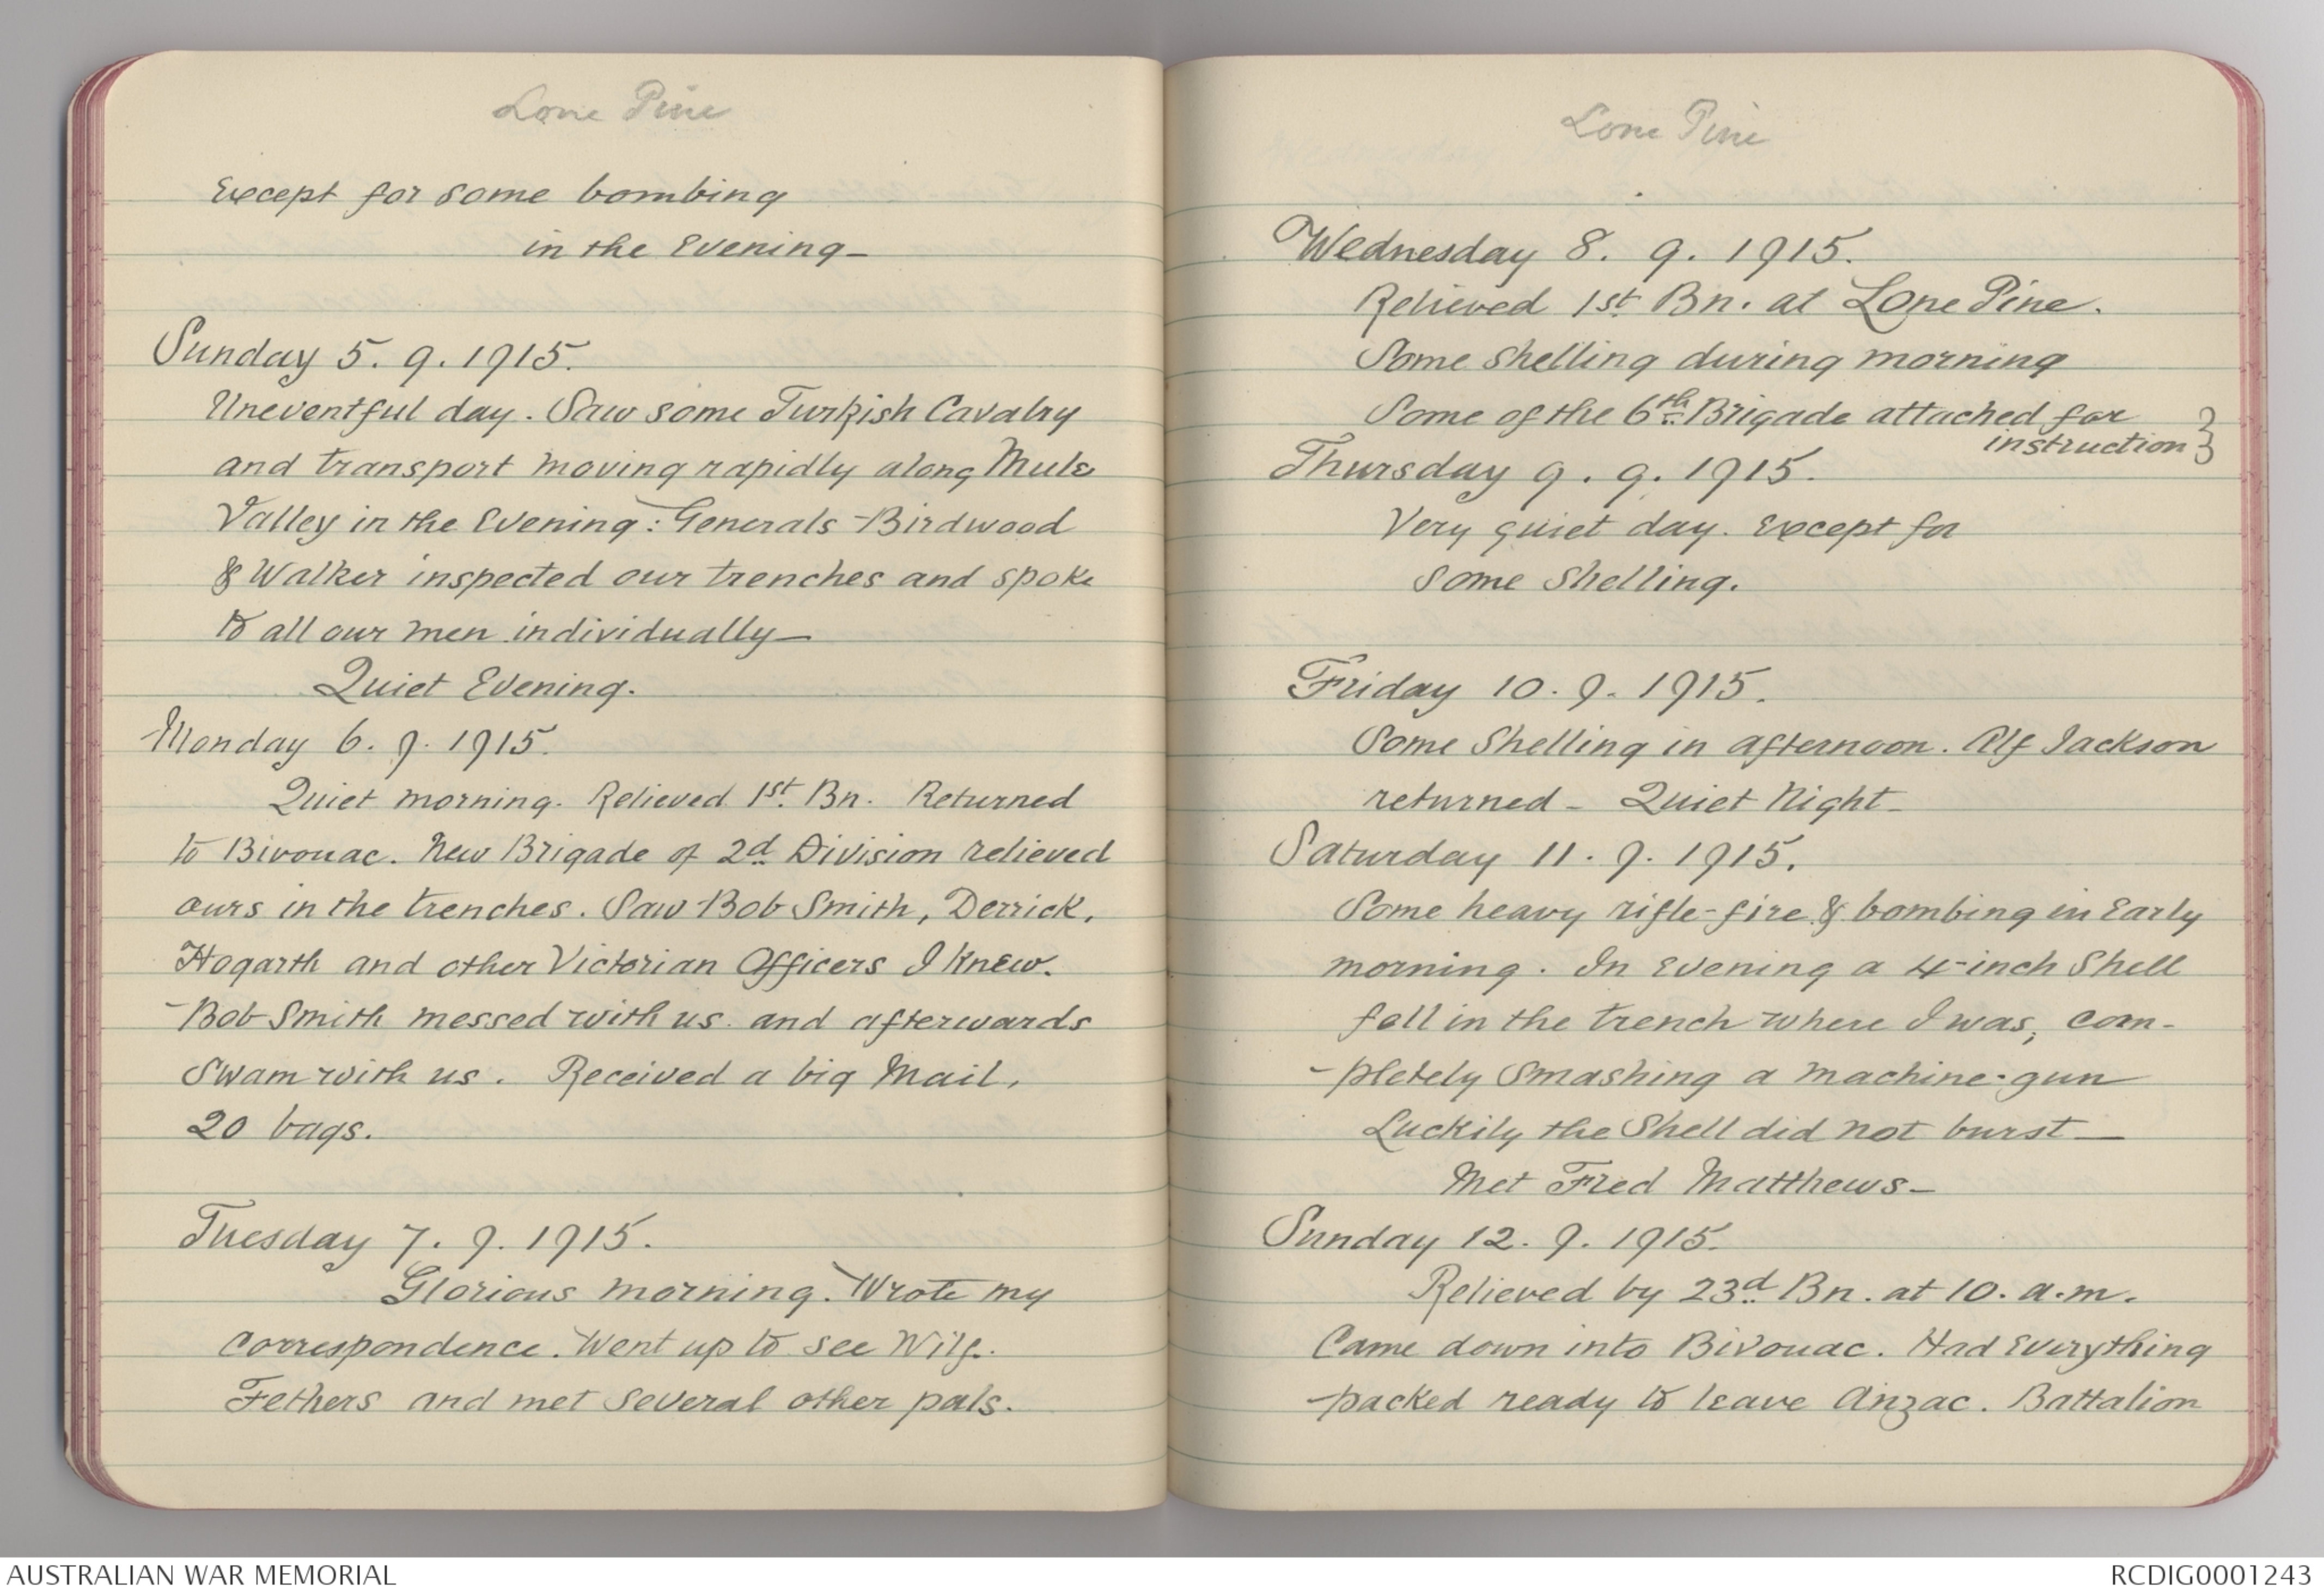 Lone Pine
Except for some bombing
in the Evening_
Sunday 5. 9. 1915.
Uneventful day. Saw some Turkish Cavalry
and transport moving rapidly along Mule
Valley in the Evening: Generals Birdwood
& Walker inspected our trenches and spoke
to all our men individually_
Quiet Evening.
Monday 6. 9. 1915.
Quiet morning. Relieved 1st. Bn. Returned
to Bivouac. New Brigade of 2d. Division relieved
ours in the trenches. Saw Bob Smith, Derrick,
Hogarth and other Victorian Officers I knew.
Bob Smith messed with us and afterwards
Swam with us. Received a big Mail,
20 bags.
Tuesday 7. 9. 1915.
Glorious morning. Wrote my
correspondence. Went up to see Wilf.
Fethers and met several other pals.
Lone Pine
Wednesday 8. 9. 1915.
Relieved 1st. Bn. at Lone Pine.
Some shelling during morning
Some of the 6th Brigade attached for
instruction }
Thursday 9. 9. 1915.
Very quiet day. Except for
some shelling.
Friday 10. 9. 1915.
Some Shelling in afternoon. Alf Jackson
returned _ Quiet Night_
Saturday 11. 9. 1915.
Some heavy rifle-fire & bombing in Early
morning. In Evening a 4-inch Shell
fell in the trench where I was, com-
-pletely Smashing a machine-gun
Luckily the Shell did not burst_
Met Fred Matthews_
Sunday 12. 9. 1915.
Relieved by 23d. Bn. at 10. a.m.
Came down into Bivouac. Had Everything
packed ready to leave Anzac. Battalion
AUSTRALIAN WAR MEMORIAL
RCDIG0001243